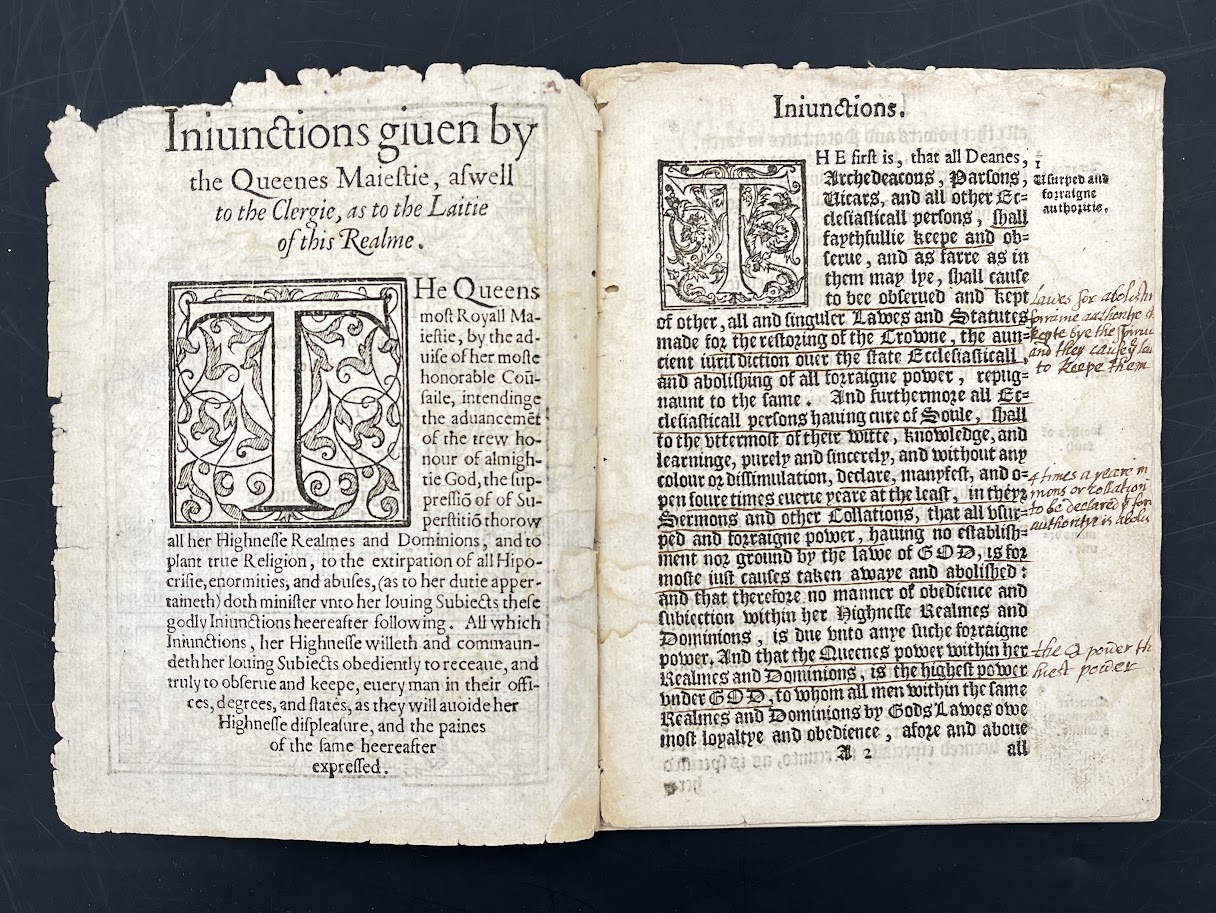 Iniunctions giuen by
the Queenes Maiestie, aswell
to the Clergie, as to the Laitie
of this Realme.
THe Queens
most Royall Ma-
iestie, by the ad-
uise of her moste
honorable Coũ-
saile, intendinge
the aduancemẽt
of the trew ho-
nour of almigh-
tie God, the sup-
pressiõ of of Su-
perstitiõ thorow
all her Highnesse Realmes and Dominions, and to
plant true Religion, to the extirpation of all Hipo-
crisie, enormities, and abuses, (as to her dutie apper-
taineth) doth minister vnto her louing Subiects these
godly Iniunctions heereafter following. All which
Iniunctions, her Highnesse willeth and commaun-
deth her louing Subiects obediently to receaue, and
truly to obserue and keepe, euery man in their offi-
ces, degrees, and states, as they will auoide her
Highnesse displeasure, and the paines
of the same heereafter
expressed.
Iniunctions.
THE first is, that all Deanes,
Archedeacons, Parsons,
Uicars, and all other Ec-
clesiasticall persons, shall
faythfullie keepe and ob-
serue, and as farre as in
them may lye, shall cause
to bee obserued and kept
of other, all and singuler Lawes and Statutes
made for the restoring of the Crowne, the aun-
cient iurisdiction ouer the state Ecclesiasticall,
and abolishing of all forraigne power, repug-
naunt to the same. And furthermore all Ec-
clesiasticall persons hauing cure of Soule, shall
to the vttermost of their witte, knowledge, and
learninge, purely and sincerely, and without any
colour or dissimulation, declare, manyfest, and o-
pen foure times euerie yeare at the least, in theyr
Sermons and other Collations, that all vsur-
ped and forraigne power, hauing no establish-
ment nor ground by the lawe of GOD, is for
moste iust causes taken awaye and abolished:
and that therefore no manner of obedience and
subiection within her Highnesse Realmes and
Dominions, is due vnto anye suche forraigne
power. And that the Queenes power within her
Realmes and Dominions, is the highest power
vnder GOD, to whom all men within the same
Realmes and Dominions by Gods Lawes owe
most loyaltye and obedience, afore and aboue
A 2
all
1
Usurped and
forraigne
authoritie.
Lawes for abolishi
forraine authoritye
kepte bye the
and they cause
to Keepe them
4 times a yeare
mons or collation
to be declared
authoritye is abolis
the Q power
hiest power